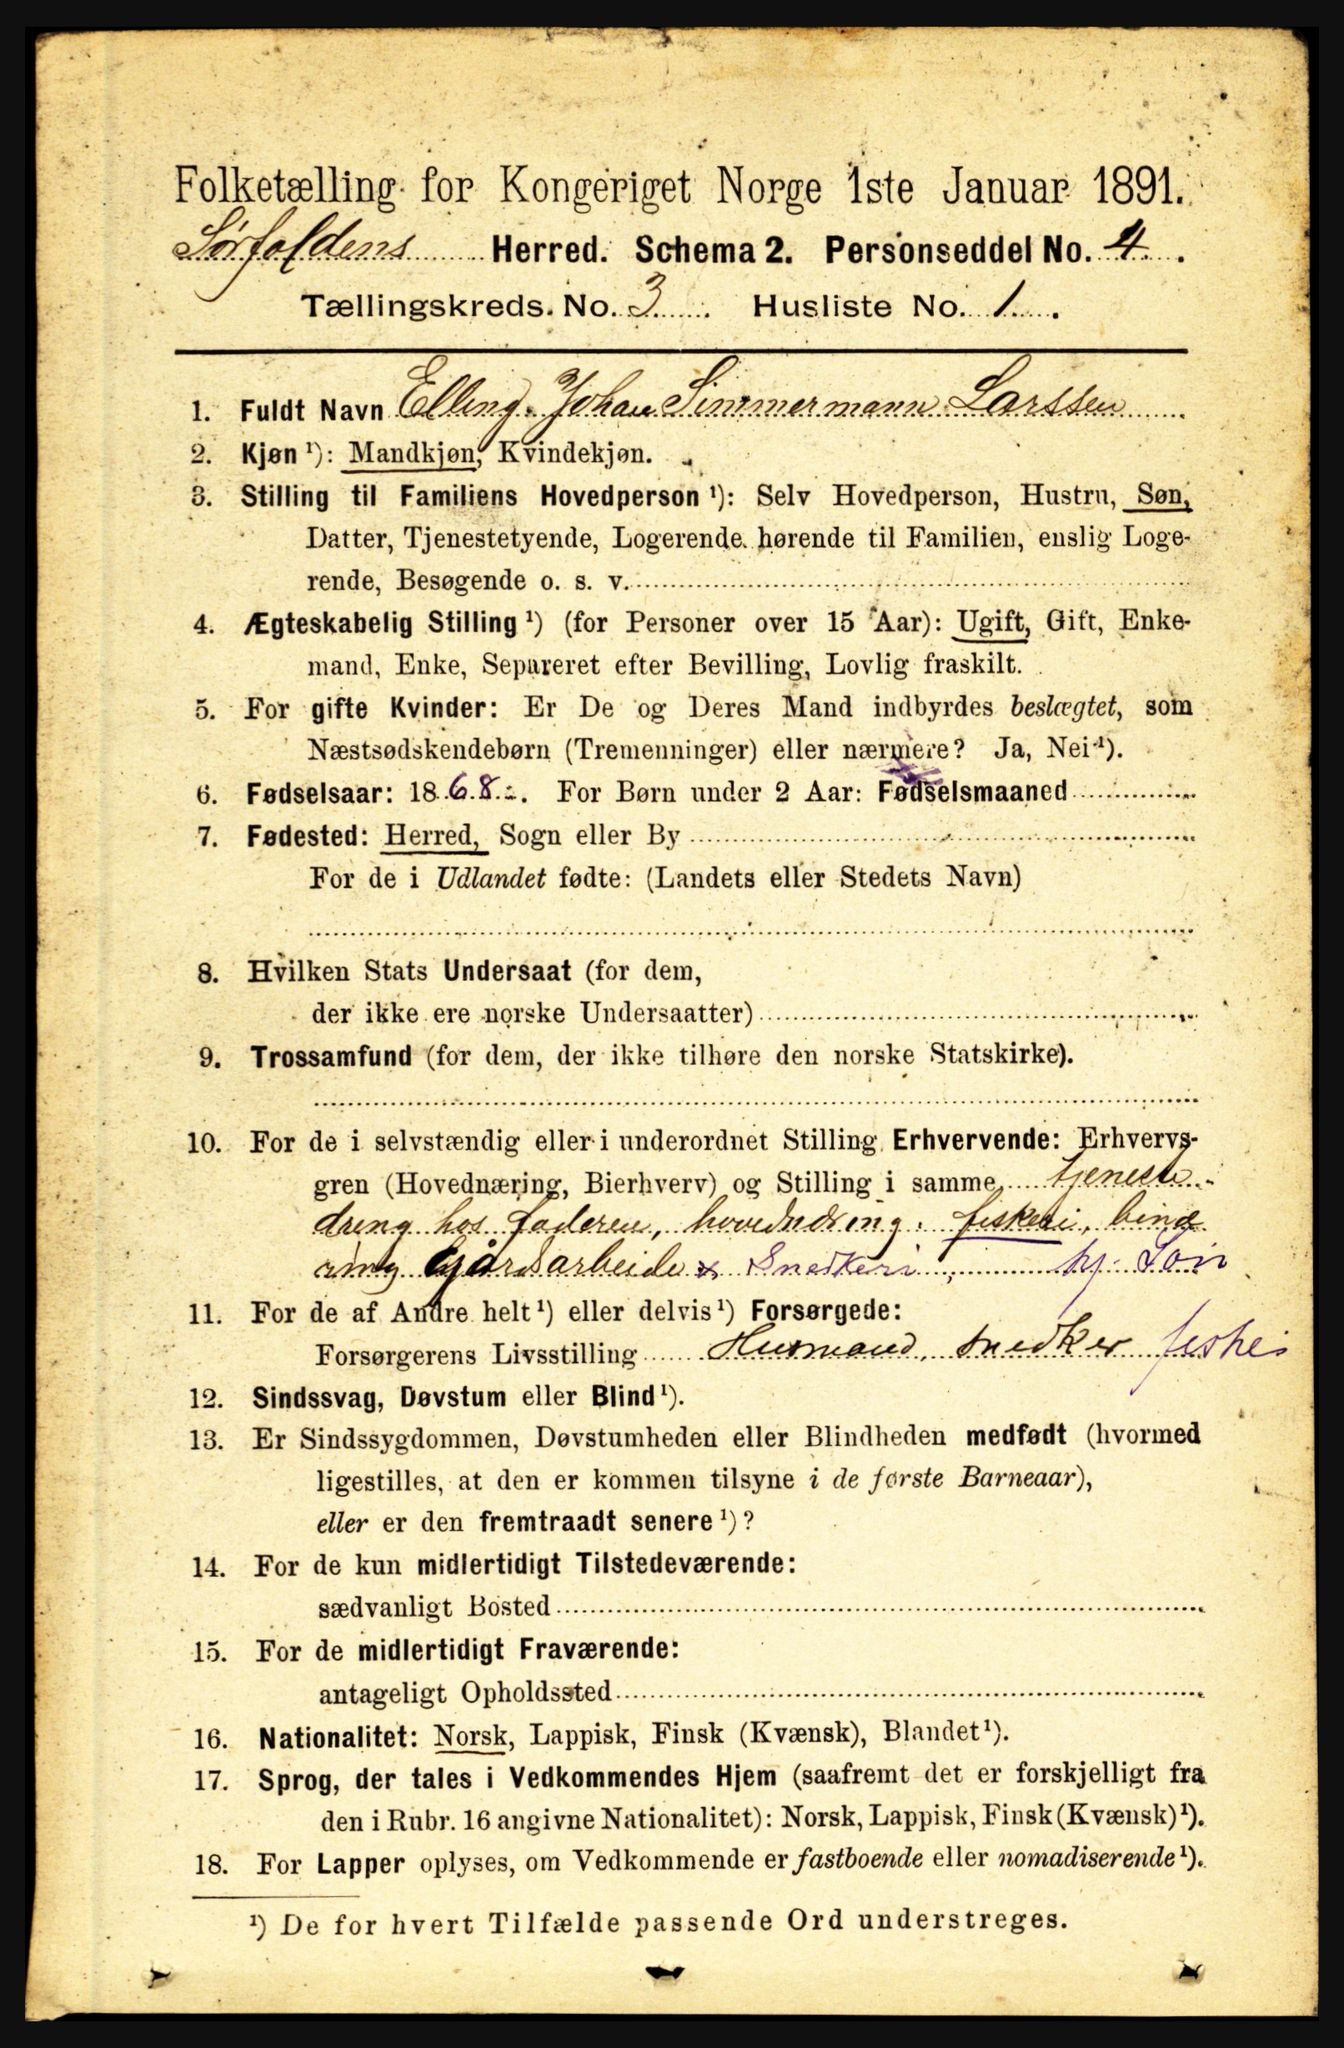 Folketælling for Kongeriget Norge 1ste Januar 1891.
Sørfoldens Herred. Schema 2. Personseddel No. 4.
Tællingskreds. No. 3. Husliste No. 1.
1. Fuldt Navn Elling Johan Simmermann Larssen
2. Kjøn ¹): Mandkjøn, Kvindekjøn.
3. Stilling til Familiens Hovedperson ¹): Selv Hovedperson, Hustru, Søn,
Datter, Tjenestetyende, Logerende hørende til Familien, enslig Loge-
rende, Besøgende o. s. v.
4. Ægteskabelig Stilling ¹) (for Personer over 15 Aar): Ugift, Gift, Enke-
mand, Enke, Separeret efter Bevilling, Lovlig fraskilt.
5. For gifte Kvinder: Er De og Deres Mand indbyrdes beslægtet, som
Næstsødskendebørn (Tremenninger) eller nærmere? Ja, Nei ¹).
6. Fødselsaar: 1868. For Børn under 2 Aar: Fødselsmaaned
7. Fødested: Herred, Sogn eller By
For de i Udlandet fødte: (Landets eller Stedets Navn)
8. Hvilken Stats Undersaat (for dem,
der ikke ere norske Undersaatter)
9. Trossamfund (for dem, der ikke tilhøre den norske Statskirke).
10. For de i selvstændig eller i underordnet Stilling Erhvervende: Erhvervs-
gren (Hovednæring, Bierhverv) og Stilling i samme tjeneste
dreng hos faderen, hovednæring. fiskeri, binæ
ring Gårdsarbeide & Snedkeri, hj. Søn
11. For de af Andre helt ¹) eller delvis ¹) Forsørgede:
Forsørgerens Livsstilling Husmand, snedker fisker
12. Sindssvag, Døvstum eller Blind ¹).
13. Er Sindssygdommen, Døvstumheden eller Blindheden medfødt (hvormed
ligestilles, at den er kommen tilsyne i de første Barneaar),
eller er den fremtraadt senere ¹)?
14. For de kun midlertidigt Tilstedeværende:
sædvanligt Bosted
15. For de midlertidigt Fraværende:
antageligt Opholdssted
16. Nationalitet: Norsk, Lappisk, Finsk (Kvænsk), Blandet ¹).
17. Sprog, der tales i Vedkommendes Hjem (saafremt det er forskjelligt fra
den i Rubr. 16 angivne Nationalitet): Norsk, Lappisk, Finsk (Kvænsk) ¹).
18. For Lapper oplyses, om Vedkommende er fastboende eller nomadiserende ¹).
¹) De for hvert Tilfælde passende Ord understreges.